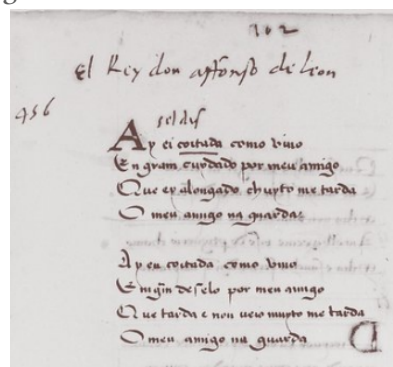 102
El Rey don affonso de leon
456
sel dis
Ay eu coitada como vivo
En gram cuydado por meu amigo
Que ey alongado muyto me tarda
O meu amigo na guarda
Ay eu coitada como vivo
En gram deseio por meu amigo
Que tarda e non veio muyto me tarda
O meu amigo na guarda